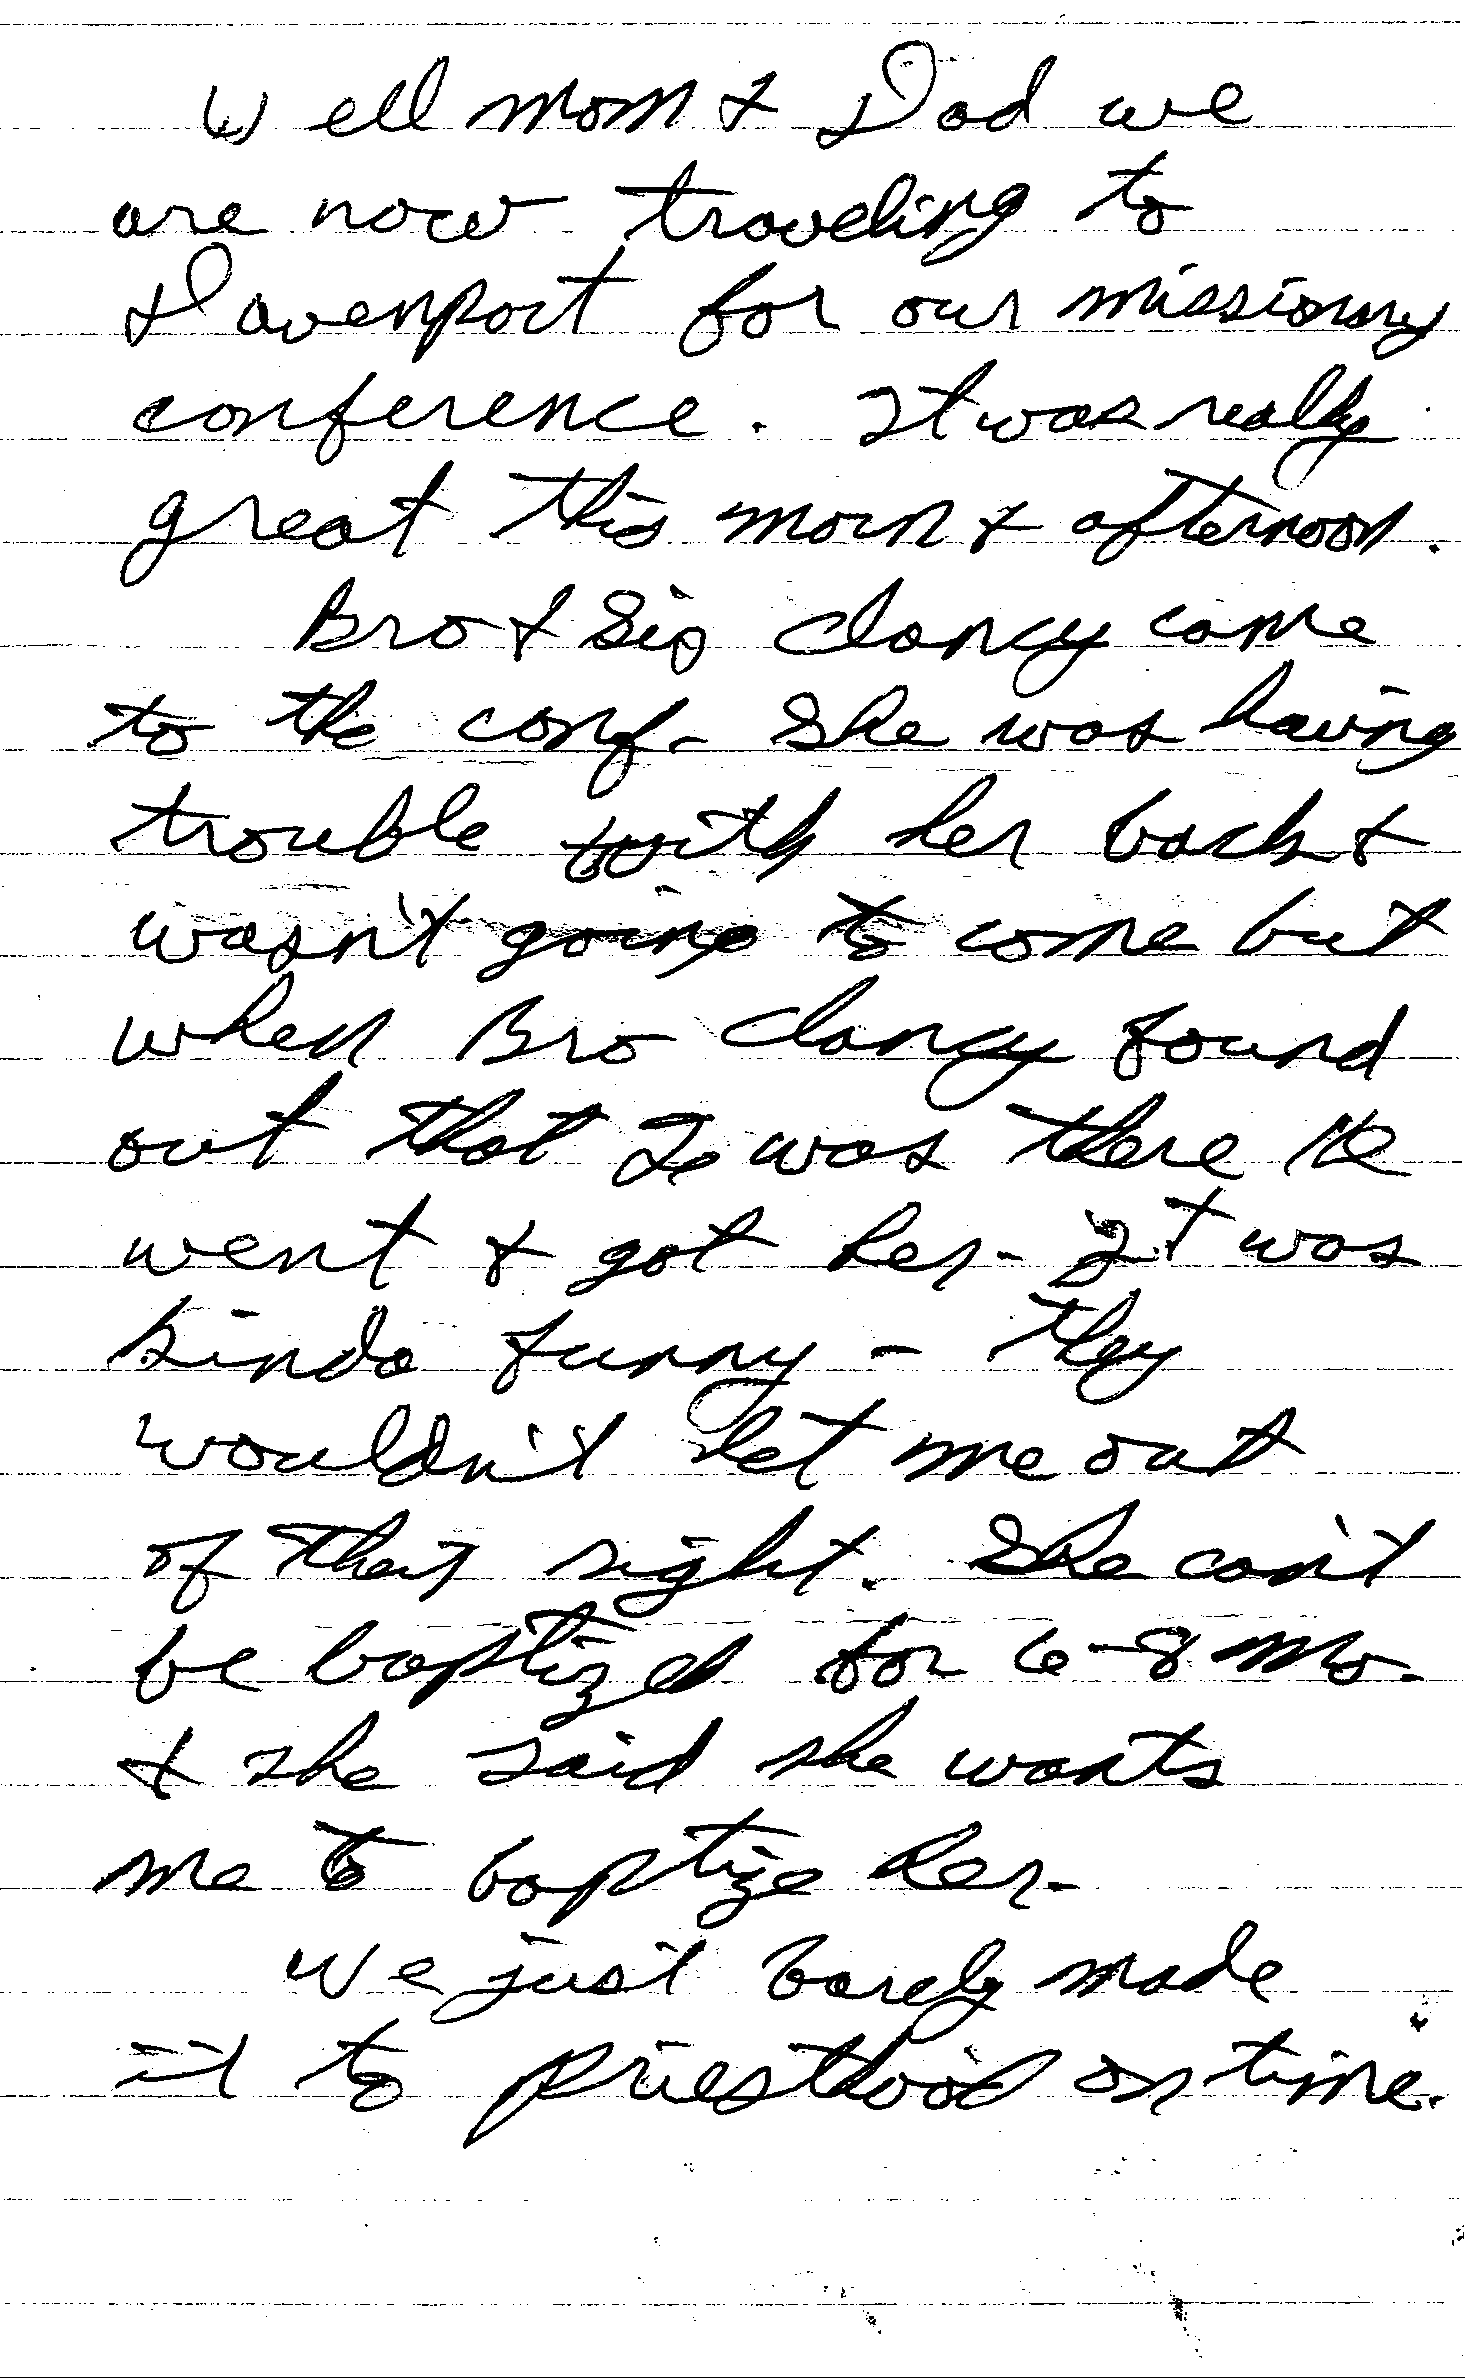 Well Mom & Dad we
are now traveling to
Davenport for our missionary
conference. It was really
great this morn & afternoon.
Bro & Sis Clancy came
to the conf. She was having
trouble with her back &
wasn't going to come but
when Bro Clancy found
out that I was there He
went & got her. It was
kinda funny - they
wouldn't let me out
of their sight. She can't
be baptized for 6-8 mo.
& she said she wants
me to baptize her.
We just barely made
it to priesthood on time.